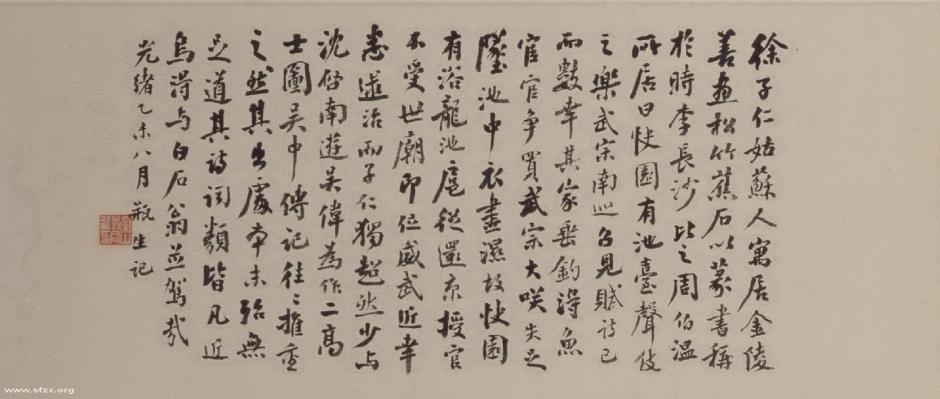 徐子仁姑蘇人寓居金陵
善畫松竹蕉石以篆書稱
於時李長沙比之周伯温
所居曰快園有池臺聲伎
之樂武宗南巡召見賦詩已
而數幸其家垂釣得魚
宦官争買武宗大咲失足
墜池中衣盡濕故快園
有浴龍池扈從還京授官
不受世廟即位威武近幸
悉逮治而子仁獨超然少与
沈啓南遊吴偉為作二高
士圖吴中傳記往〻推重
之然其出處本末殆無
足道其詩詞類皆凡近
烏得与白石翁並駕哉
光緒乙未八月 瓶生記
www.sfzx.org